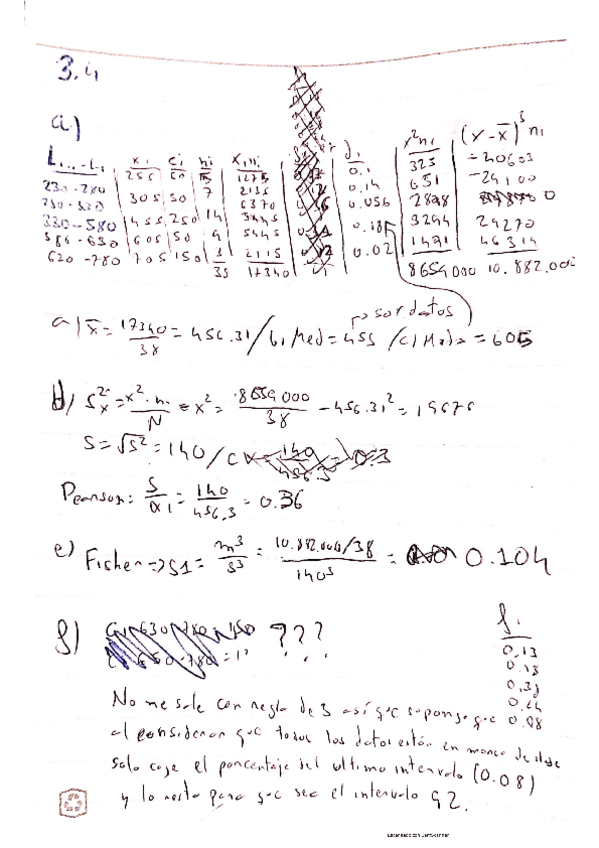 3.4
a)
Li-1 - Li | xi | ci | ni | xi ni | fi | x²ni | (x - x̄)³ni
230 - 280 | 255 | 50 | 5 | 1275 | 0.1 | 325 | -20603
280 - 330 | 305 | 50 | 7 | 2135 | 0.14 | 651 | -24100
330 - 580 | 455 | 250 | 14 | 6370 | 0.056 | 2898 | 0
580 - 630 | 605 | 50 | 9 | 5445 | 0.18 | 3294 | 29270
630 - 780 | 705 | 150 | 3 | 2115 | 0.02 | 1491 | 46314
38 | 17340 | 8659000 | 10.882.000
a) x̄ = 17340/38 = 456.31 / b) Med = 455 / c) Moda = 605
por datos
d) S²x = x²·ni/N = x² = 8659000/38 - 456.31² = 19676
S = √S² = 140 /
Pearson: S/|x̄| = 140/456,3 = 0.36
e) Fisher => g1 = m³/s³ = 10.882.000/38 / 140³ = 0.104
f) ? ? ?
fi
0.13
0.18
0.24
0.08
No me sale con regla de 3 así que supongo que
al considerar que todos los datos están en marca de clase
solo coge el porcentaje del ultimo intervalo (0.08)
y lo resta para que sea el intervalo 92.